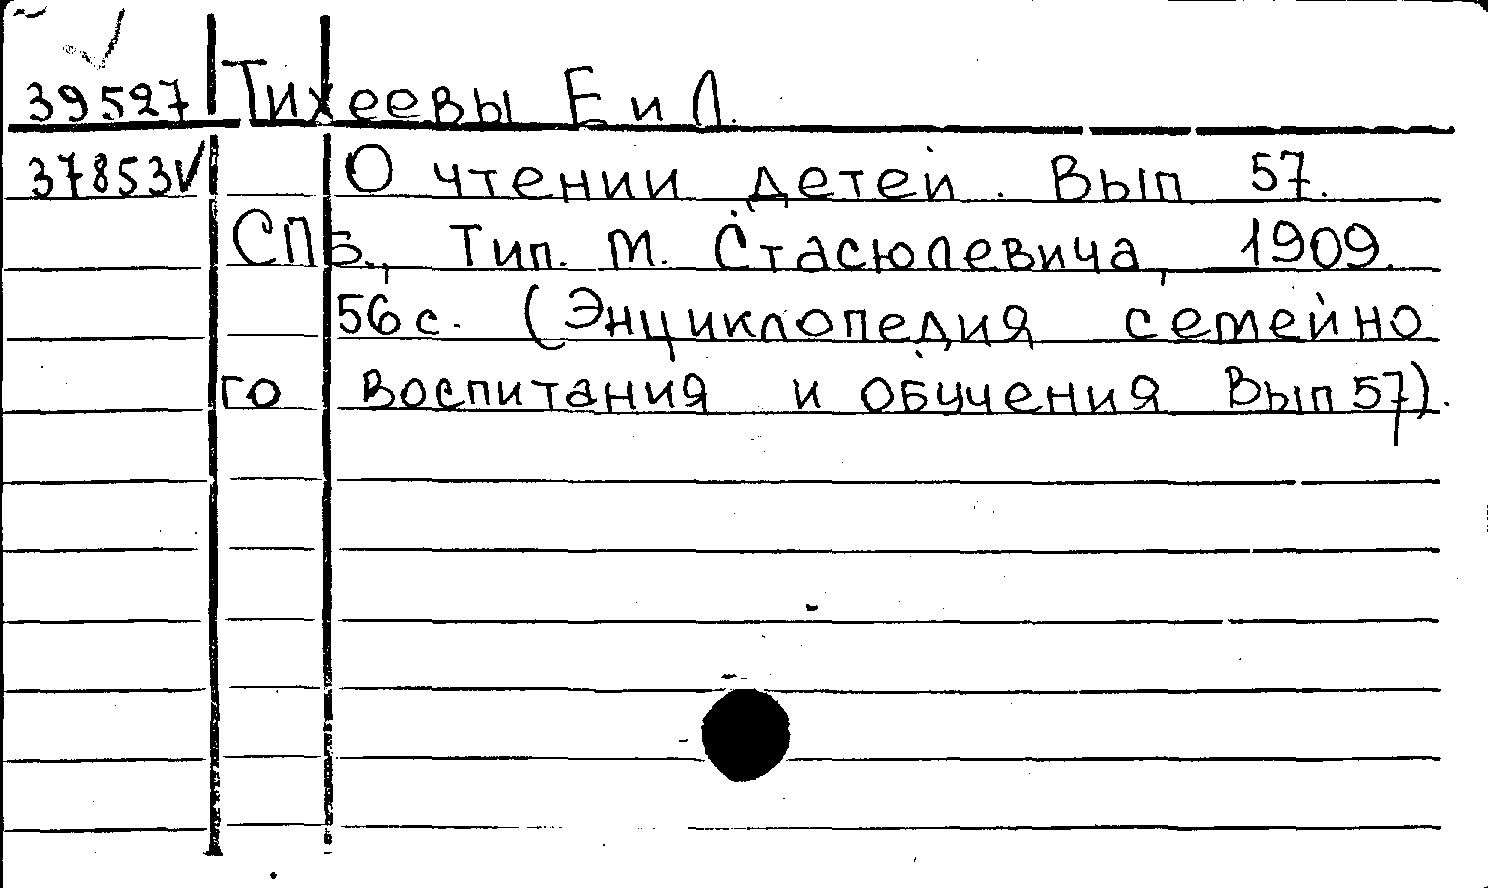 39527 Тихеевы Е и Л.
37853√ О чтении детей. Вып 57.
СПБ., Тип. М. Стасюлевича, 1909.
56 с. (Энциклопедия семейно
го воспитания и обучения Вып 57).